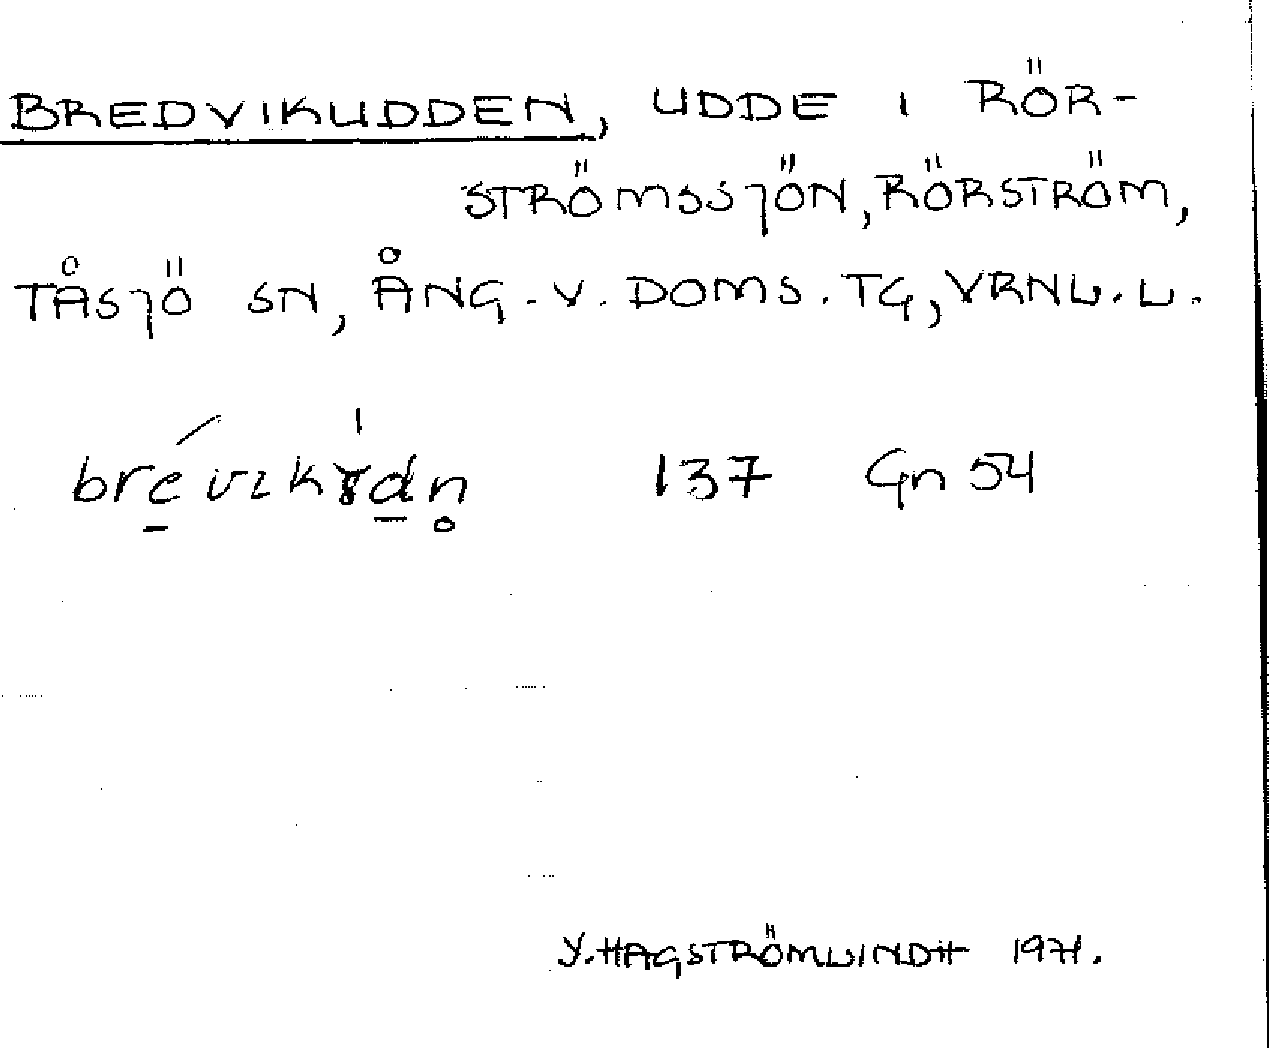 BREDVIKUDDEN, UDDE I RÖR-
STRÖMSSJÖN, RÖRSTRÖM,
TÅSJÖ SN, ÅNG. V. DOMS. TG, VRNL. L.
137 Gn 54
Y. HAGSTRÖM LINDH 1971.